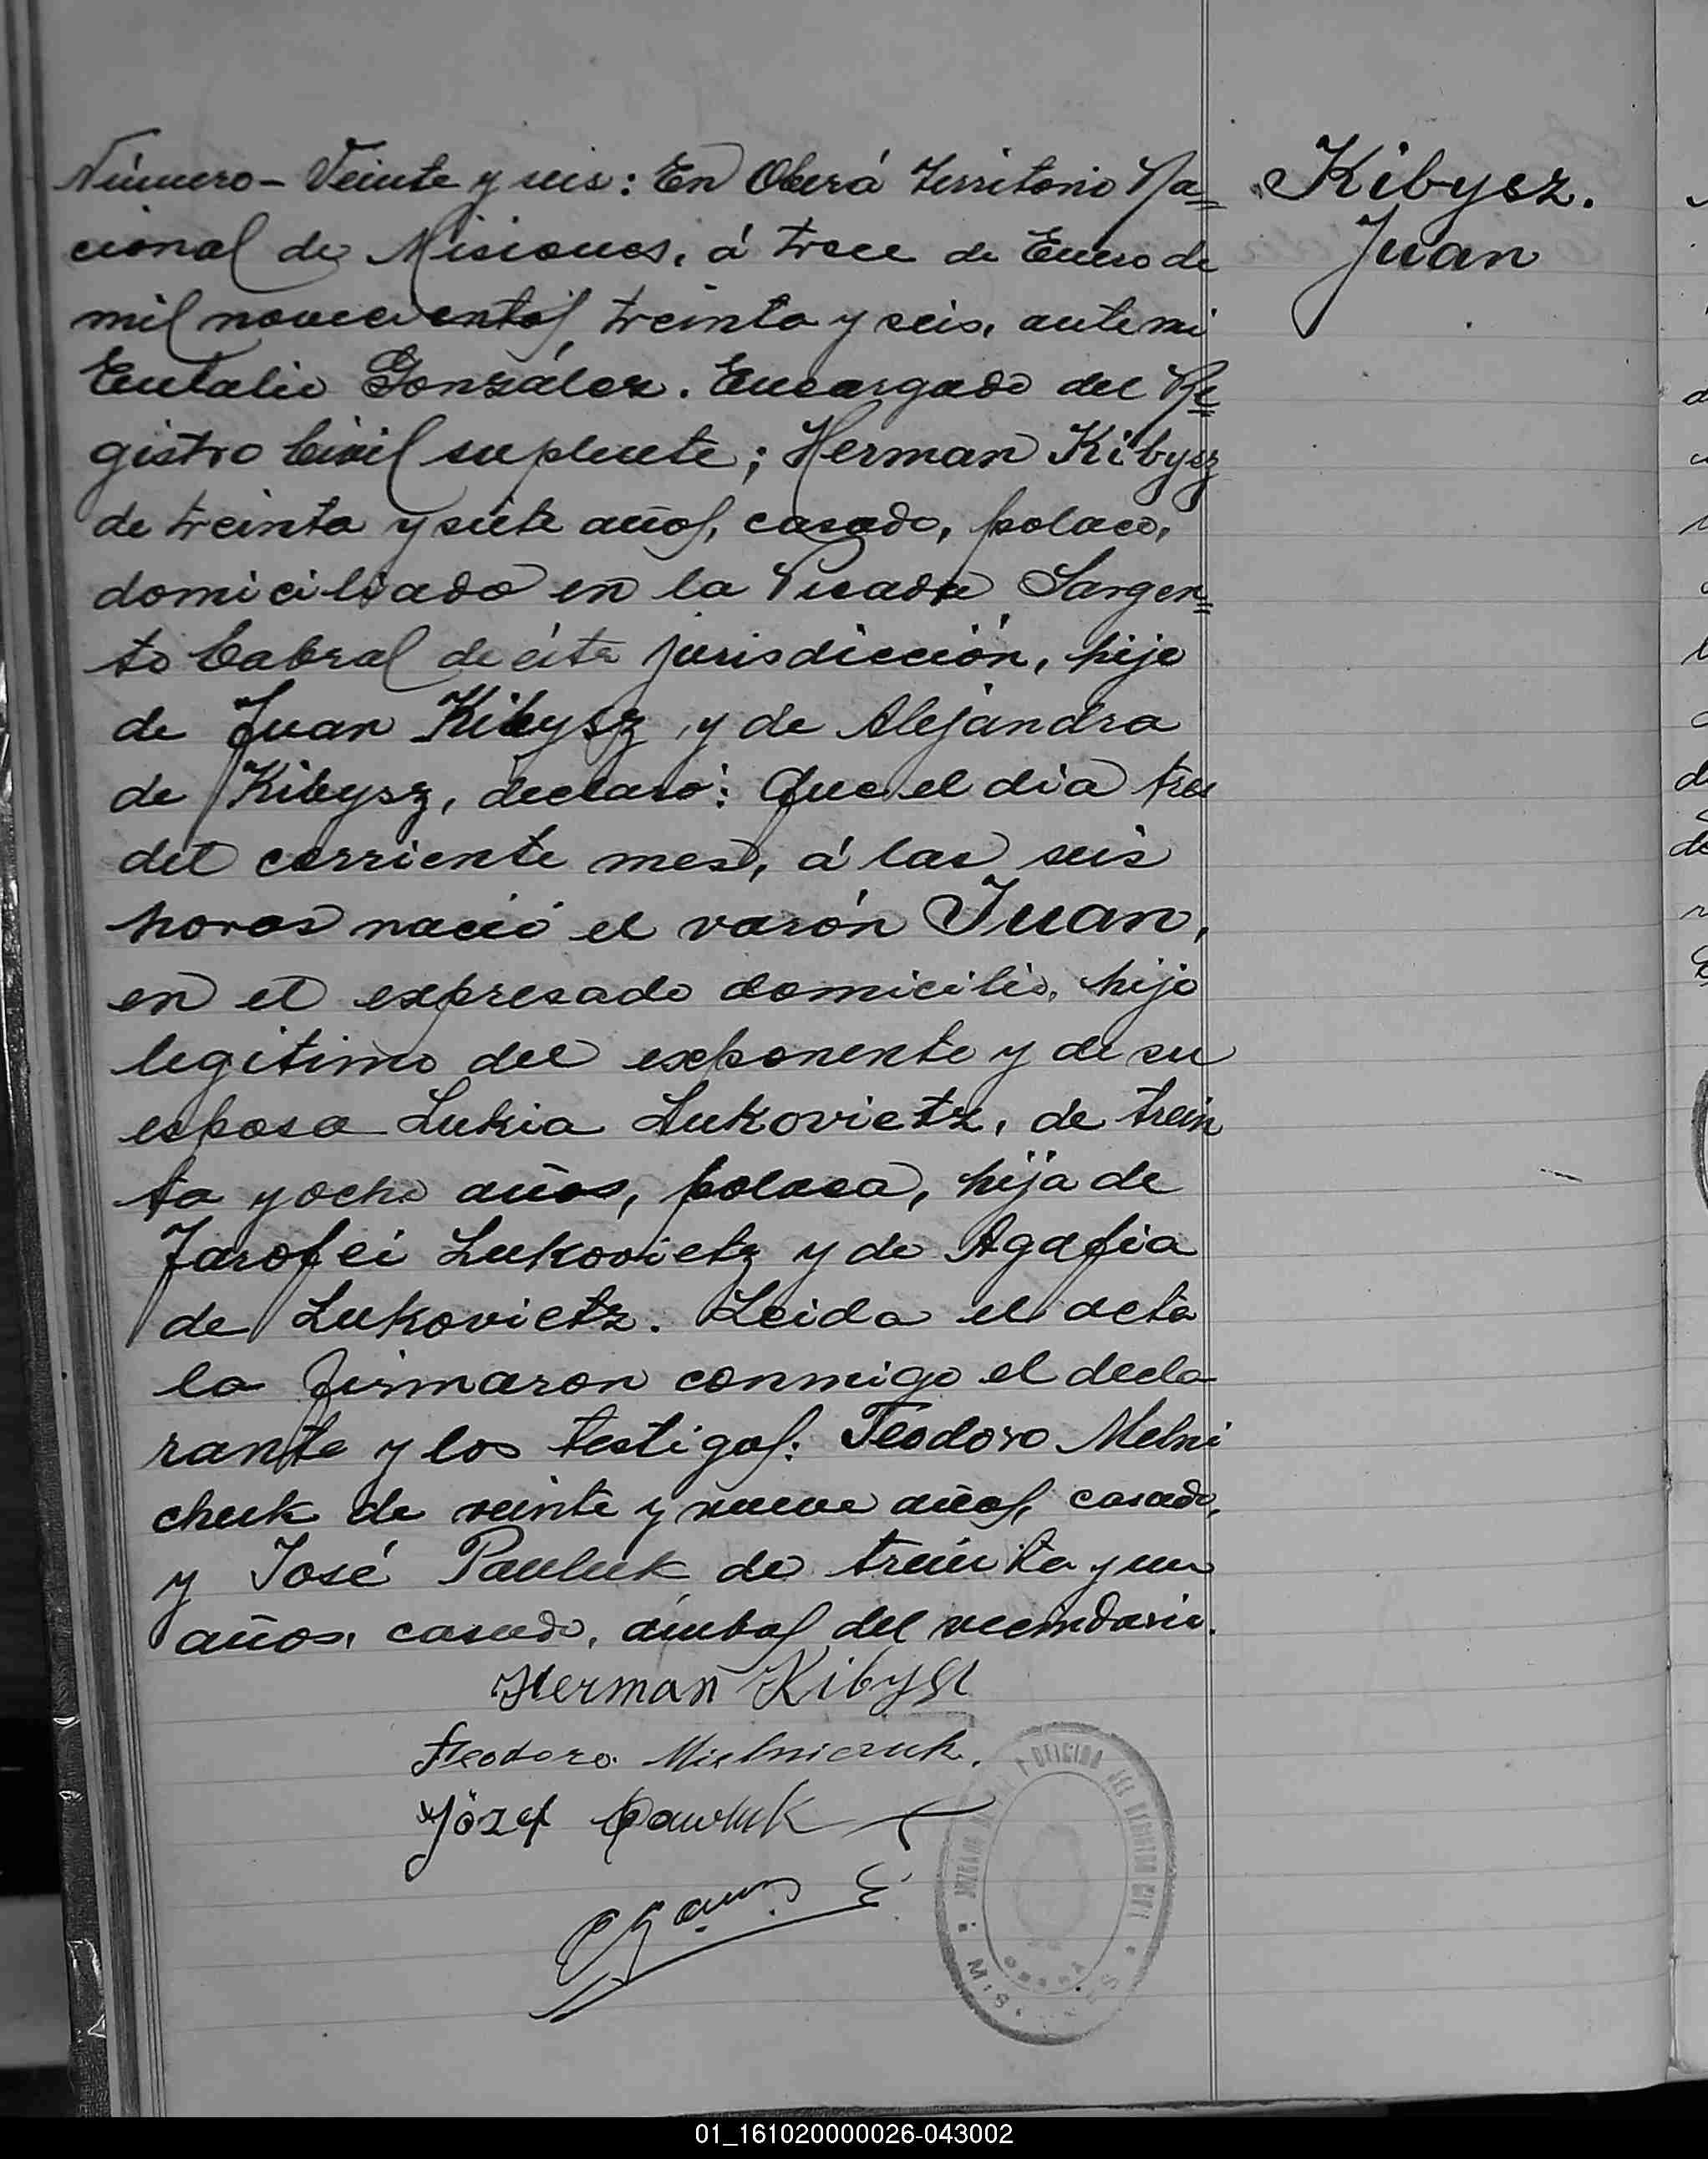 Número - Veinte y seis: En Oberá Territorio Na=
cional de Misiones, á trece de Enero de
mil novecientos treinta y seis, ante mi
Eulalio González. Encargado del Re=
gistro Civil suplente; Herman Kibysz
de treinta y siete años, casado, polaco,
domiciliado en la Picada Sargen=
to Cabral de ésta jurisdicción, hijo
de Juan Kibysz, y de Alejandra
de Kibysz, declaró: Que el día tres
del corriente mes, á las seis
horas nació el varón Juan,
en el expresado domicilio, hijo
legitimo del exponente y de su
esposa Lukia Lukovietz, de trein
ta y ocho años, polaca, hija de
Jarofei Lukovietz y de Agafia
de Lukovietz. Leida el acta
la firmaron conmigo el decla
rante y los testigos: Teodoro Melni
chuk de veinte y nueve años, casado,
y José Pauluk de treinta y un
años, casado, ámbos del vecindario.
Herman Kibysz
Teodoro Mielniczuk.
Józef Pawluk
Kibysz.
Juan
JUZGADO DE PAZ Y OFICINA DEL REGISTRO CIVIL
OBERÁ
MISIONES
01_161020000026-043002